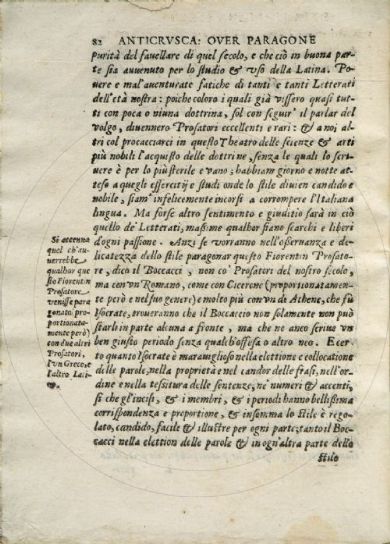 82 ANTICRVSCA: OVER PARAGONE
purità del fauellare di quel secolo, e che ciò in buona par-
te sia auuenuto per lo studio & vso della Latina. Po-
uere e mal'auenturate fatiche di tanti e tanti Letterati
dell'età nostra: poiche coloro i quali già vissero quasi tut-
ti con poca o niuna dottrina, sol con seguir il parlar del
volgo, diuennero Prosatori eccellenti e rari: & a noi al-
tri col procacciarci in questo Theatro delle scienze & arti
più nobili l'acquisto delle dottrine, senza le quali lo scri-
uere è per lo più sterile e vano; habbiam giorno e notte at-
teso a quegli essercitij e studi onde lo stile diuien candido e
nobile, siam' infelicemente incorsi a corrompere l'Italiana
lingua. Ma forse altro sentimento e giuditio sarà in ciò
quello de' Letterati, massime qualhor siano scarchi e liberi
d'ogni passione. Anzi se vorranno nell'osseruanza e de-
licatezza dello stile paragonar questo Fiorentin Prosato-
re, dico il Boccacci, non co' Prosatori del nostro secolo,
ma con vn Romano, come con Cicerone (proportionatamen-
te però e nel suo genere) e molto più con vn di Athene, che fù
Isocrate, troueranno che il Boccaccio non solamente non può
starli in parte alcuna a fronte, ma che nè anco scriue vn
ben giusto periodo sinza qualch'offesa o altro neo. E cer-
to quanto Isocrate è marauiglioso nella elettione e collocatione
delle parole, nella proprietà e nel candor delle frasi, nell'or-
dine e nella tessitura delle sentenze, ne' numeri & accenti,
sì che gl'incisi, & i membri, & i periodi hanno bellissima
corrispondenza e proportione, & insomma lo stile è rego-
lato, candido, facile & illustre per ogni parte; tanto il Boc-
cacci nella elettion delle parole & in ogn'altra parte dello
stile
Si accenna
quel ch'au-
uerrebbe
qualhor que
sto Fiorentin
Prosatore
venisse para
gonato pro-
portionata-
mente però
con due altri
Prosatori,
l'vn Greco, e
l'altro Lati-
no.